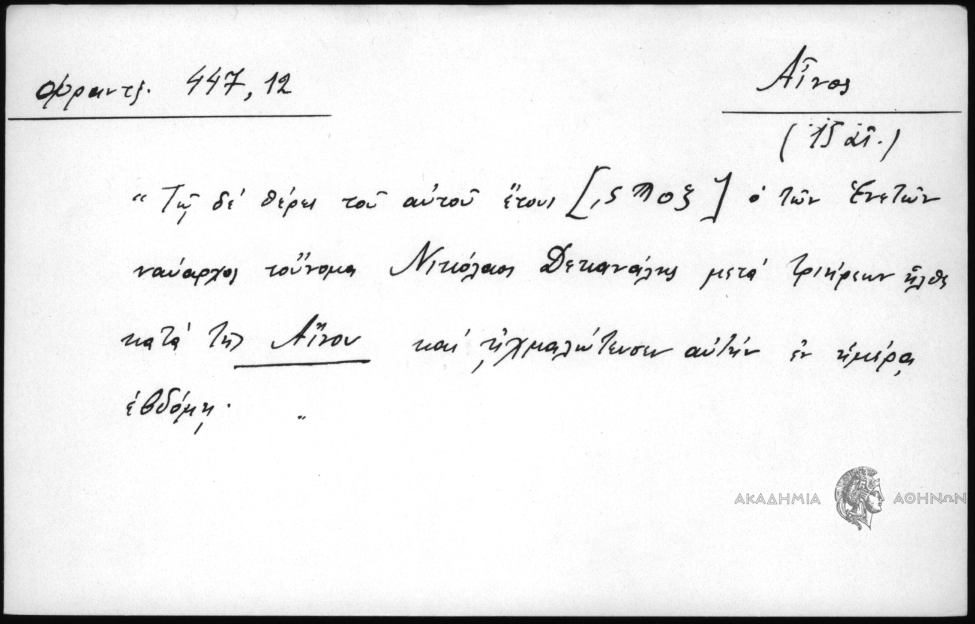 Φραντζ. 447, 12
Αἶνος
(15 αἰ.)
“Τῷ δέ θέρει τοῦ αὐτοῦ ἔτους [,ϛ Ϡ ο ξ] ὁ τῶν Ἐνετῶν
ναύαρχος τοὔνομα Νικόλαος Δεκανάλης μετά τριήρεων ἦλθε
κατά τῆς Αἴνου καί ᾐχμαλώτευσεν αὐτήν ἐν ἡμέρᾳ
ἑβδόμῃ. „
ΑΚΑΔΗΜΙΑ ΑΘΗΝΩΝ